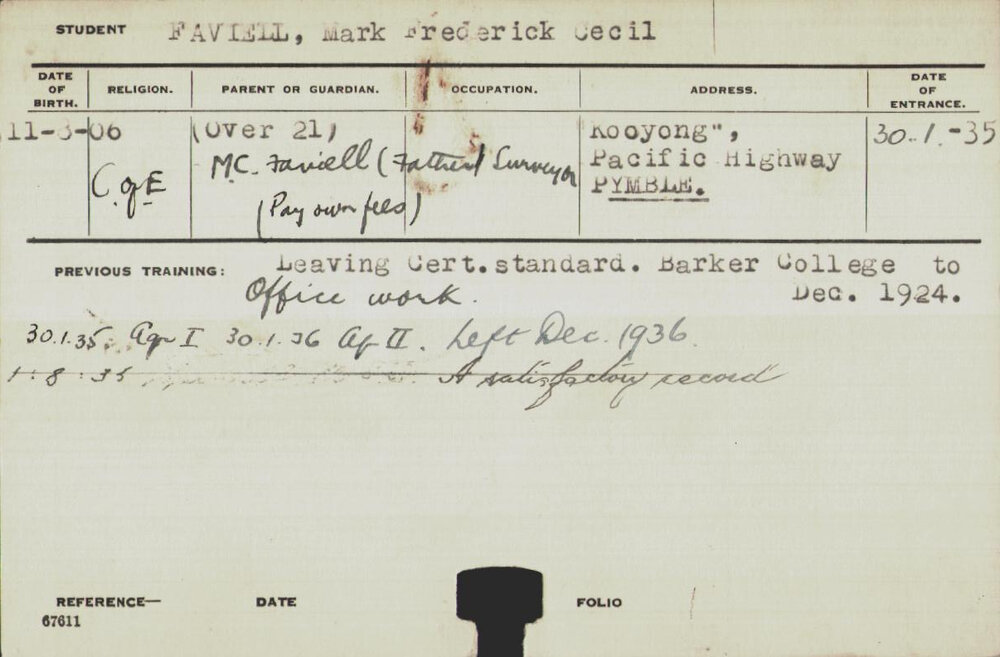 STUDENT FAVIELL, Mark Frederick Cecil
DATE OF BIRTH. RELIGION. PARENT OR GUARDIAN. OCCUPATION. ADDRESS. DATE OF ENTRANCE.
11-3-06 (Over 21) Kooyong", 30.1.-35
C. of E M.C. Faviell (Father) Surveyor Pacific Highway
(Pay own fees) PYMBLE.
PREVIOUS TRAINING: Leaving Cert.standard. Barker College to
Office work. Dec. 1924.
30.1.35 Agr I 30.1.36 Ag II. Left Dec. 1936.
1.8.35 A satisfactory record
REFERENCE— DATE FOLIO
67611